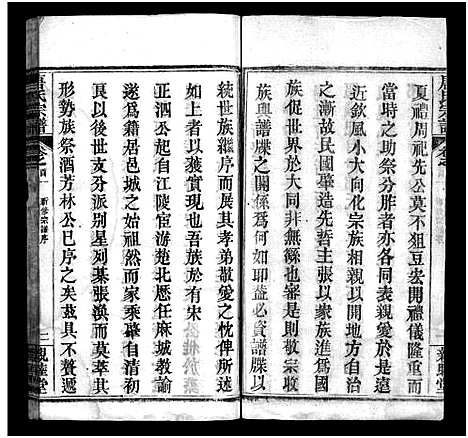 夏禮周祀先公莫不俎豆宏開禮儀隆重而
當時之助祭分亦各同表親愛於
近歛風小大向化宗族相親以開地方自治
之漸故民國肇造先哲主張以家族進為國
族俾世界於大同非無繇也是則敬宗收
族與譜牒之關係為何如耶益必資譜牒以
統世族繼序而展其孝弟敬愛之忱俾所述
如上者以獲實現於吾族有於宋
正泗公起自江陵宦游楚北歷任麻城教諭
遂為籍居邑城大而家乘肇自清初
其後世支分派別星列棊張渙而莫萃其
形勢族祭酒芳林公已序之矣茲具不贅遞
唐氏宗譜
卷之首
新修宗譜序
二
親睦堂